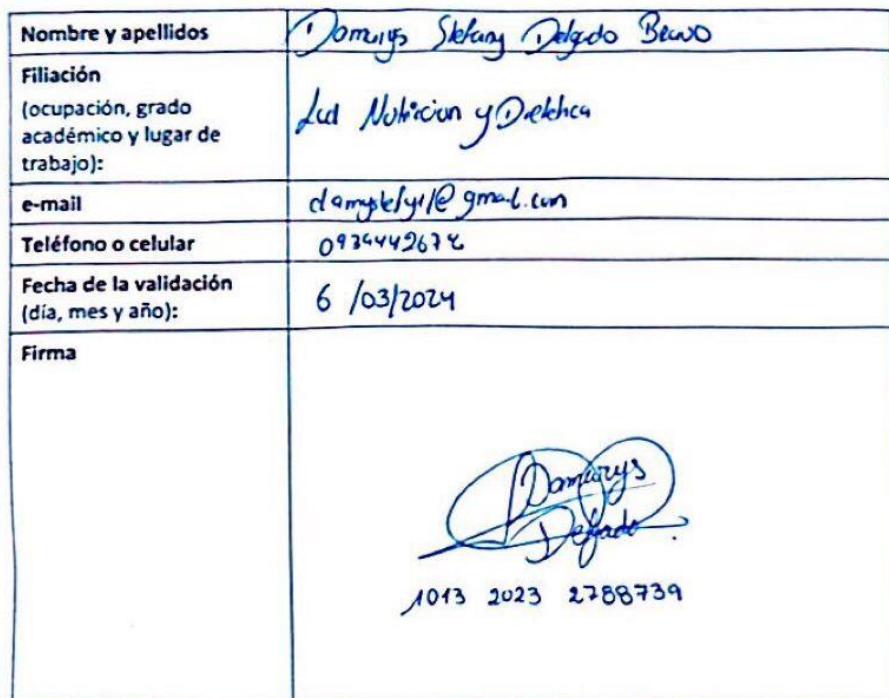 Nombre y apellidos
Damurys Stefany Delgado Bravo
Filiación
(ocupación, grado
académico y lugar de
trabajo):
Lcd Nutricion y Dietetica
e-mail
@gmail.com
Teléfono o celular
Fecha de la validación
(día, mes y año):
6 /03/2024
Firma
Damurys
Delgado
1013 2023 2788739